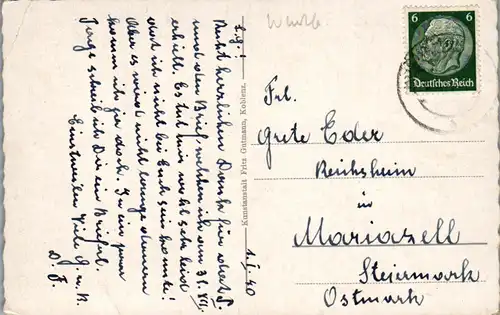 L. G.!
Recht herzlichen Dank für das P.
und den Brief welchen ich am 31. XII.
erhielt. Es tut mir wohl sehr leid
das ich nicht bei Euch sein konnte!
Aber es wird nicht lange dauern
komm ich ja doch. In ein paar
Tage schreib ich Dir ein Brieferl.
Einstweilen Viele G. u. K.
D. F.
1. I. 40
Kunstanstalt Fritz Gutmann, Koblenz.
6 6
Deutsches Reich
Frl.
Grete Eder
Reichsheim
in
Mariazell
Steiermark
Ostmark